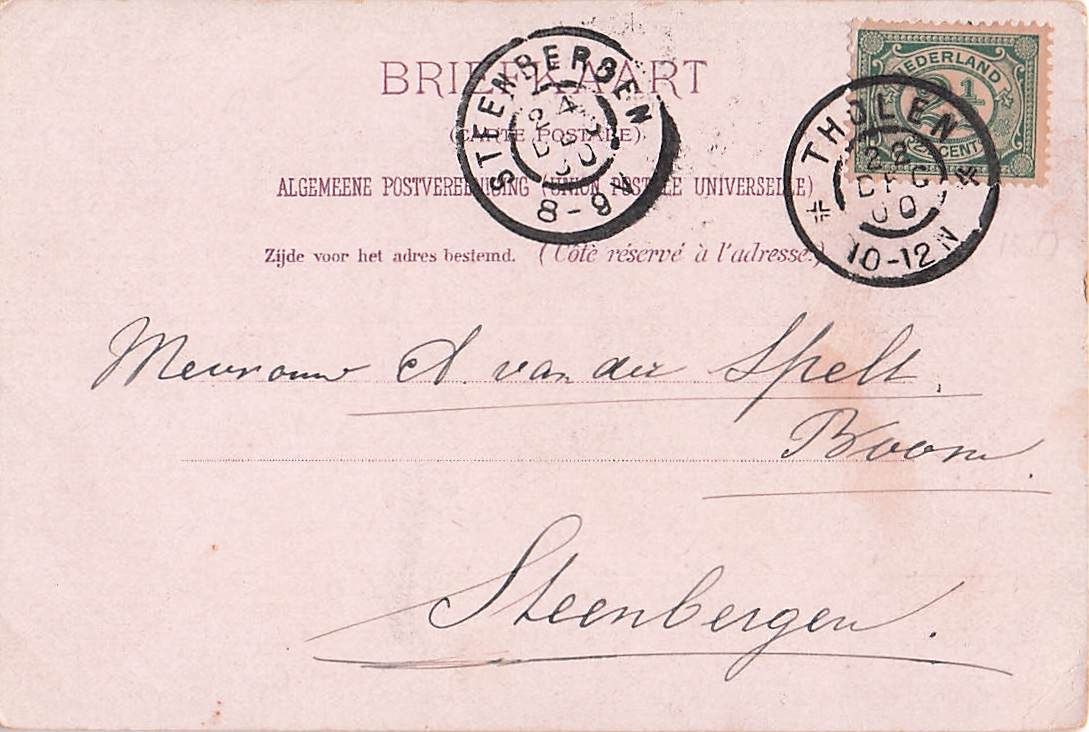 BRIEFKAART
(CARTE POSTALE)
ALGEMEENE POSTVEREENIGING (UNION POSTALE UNIVERSELLE)
Zijde voor het adres bestemd. (Côté réservé à l'adresse.)
NEDERLAND
2½
CENT
STEENBERGEN
DEC
00
8-9N
THOLEN
22
DEC
00
10-12N
Mevrouw A. van der Spelt.
Boom.
Steenbergen.